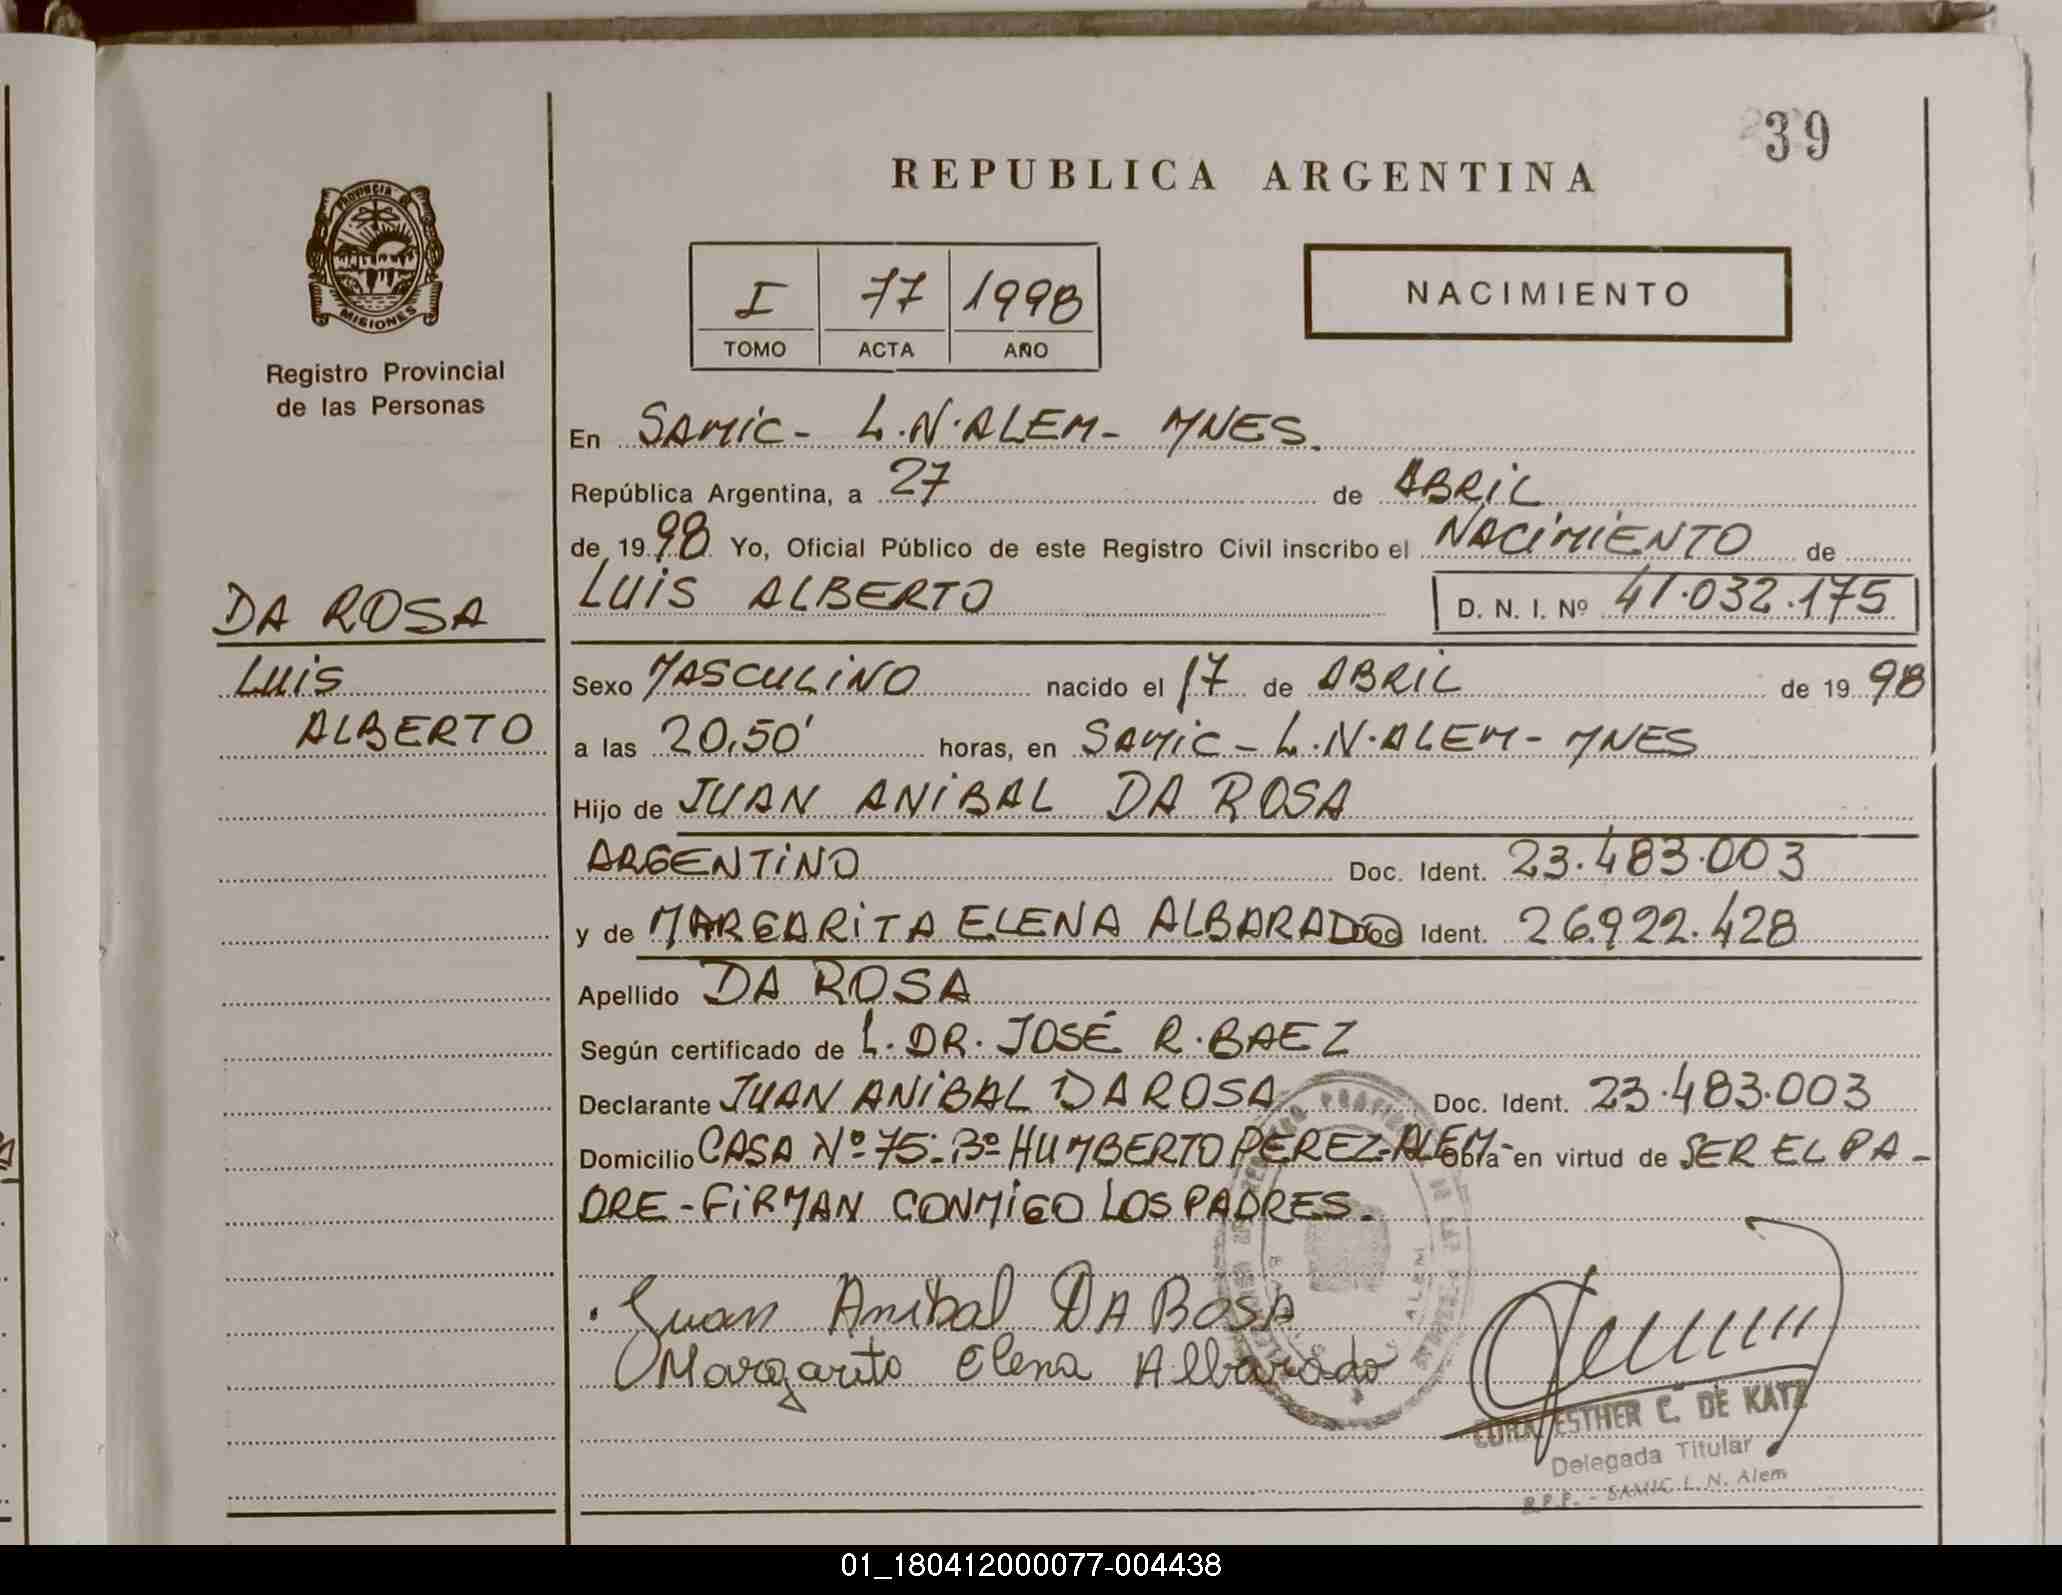 39
REPUBLICA ARGENTINA
PROVINCIA DE
MISIONES
Registro Provincial
de las Personas
I 77 1998
TOMO ACTA AÑO
NACIMIENTO
En SAMIC - L.N. ALEM - MNES.
República Argentina, a 27 de ABRIL
de 1998 Yo, Oficial Público de este Registro Civil inscribo el NACIMIENTO de
LUIS ALBERTO D. N. I. Nº 41.032.175
DA ROSA
LUIS
ALBERTO
Sexo MASCULINO nacido el 17 de ABRIL de 1998
a las 20,50' horas, en SAMIC - L.N. ALEM - MNES
Hijo de JUAN ANIBAL DA ROSA
ARGENTINO Doc. Ident. 23.483.003
y de MARGARITA ELENA ALBARADO Doc Ident. 26.922.428
Apellido DA ROSA
Según certificado de L. DR. JOSÉ R. BAEZ
Declarante JUAN ANIBAL DA ROSA Doc. Ident. 23.483.003
Domicilio CASA Nº 75 - Bº HUMBERTO PEREZ - ALEM - Obra en virtud de SER EL PA-
DRE - FIRMAN CONMIGO LOS PADRES.
Juan Anibal DA ROSA
Margarita Elena Albarado
ESTHER C. DE KATZ
Delegada Titular
R.P.P. - SAMIC L. N. Alem
01_180412000077-004438